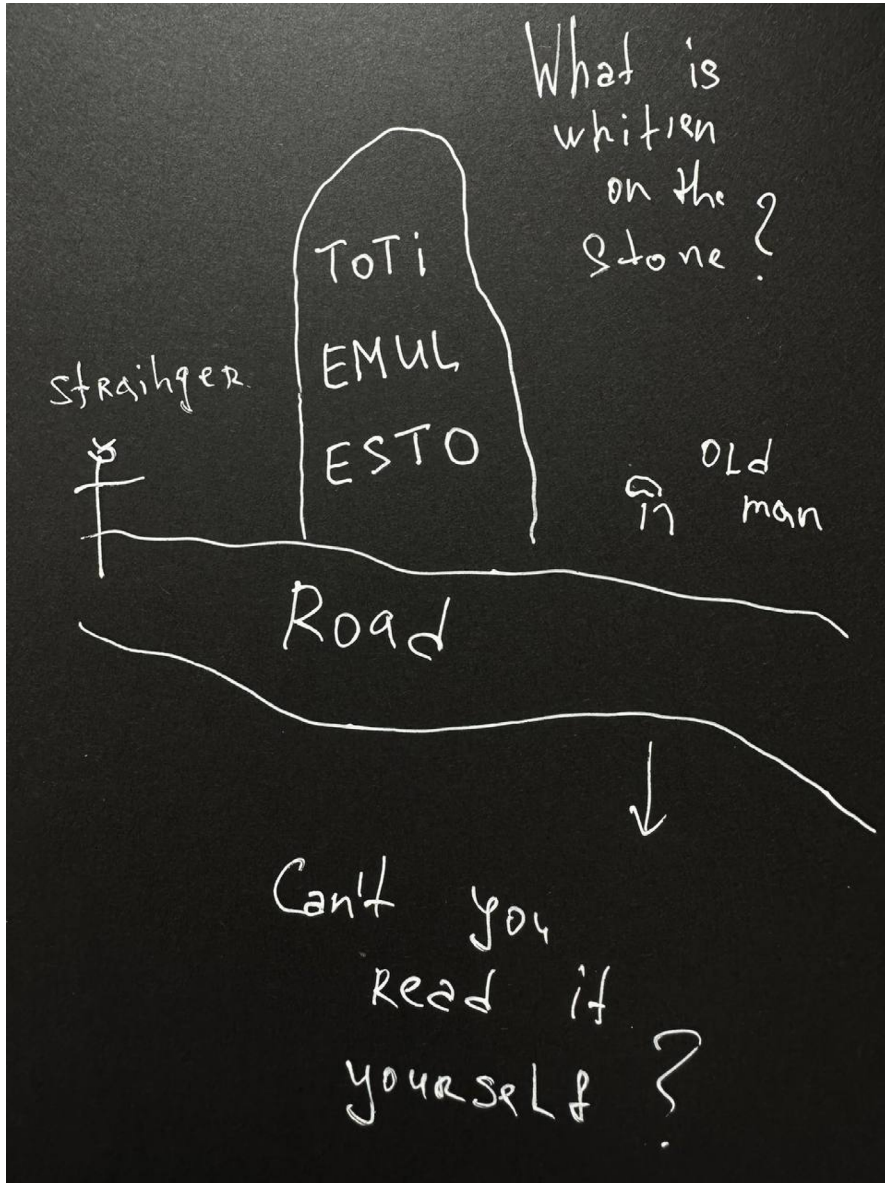 What is
whitten
on the
Stone?
TOTi
EMUL
ESTO
Straihger
OLd
man
Road
Can't you
Read it
yourself?